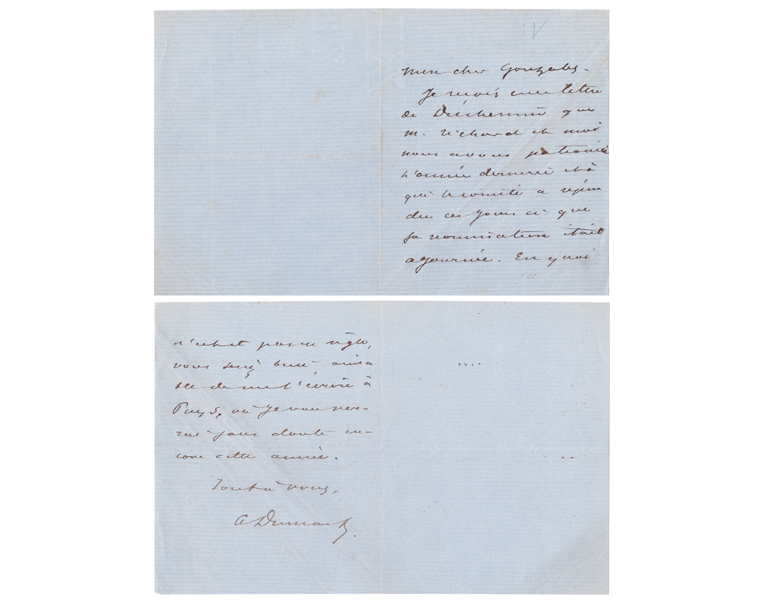 Mon cher Gonzalès.
Je reçois une lettre
de Duchesnin que
M. Richard et moi
nous avons patronné
l'année dernière et à
qui le comité a répon
du ces jours ci que
sa nomination était
ajournée. En quoi
n'est pas en règle,
vous serez bien aima
ble de me l'écrire à
Puys, où je vous ver-
rai sans doute en-
core cette année.
Tout à vous,
A Dumas f.